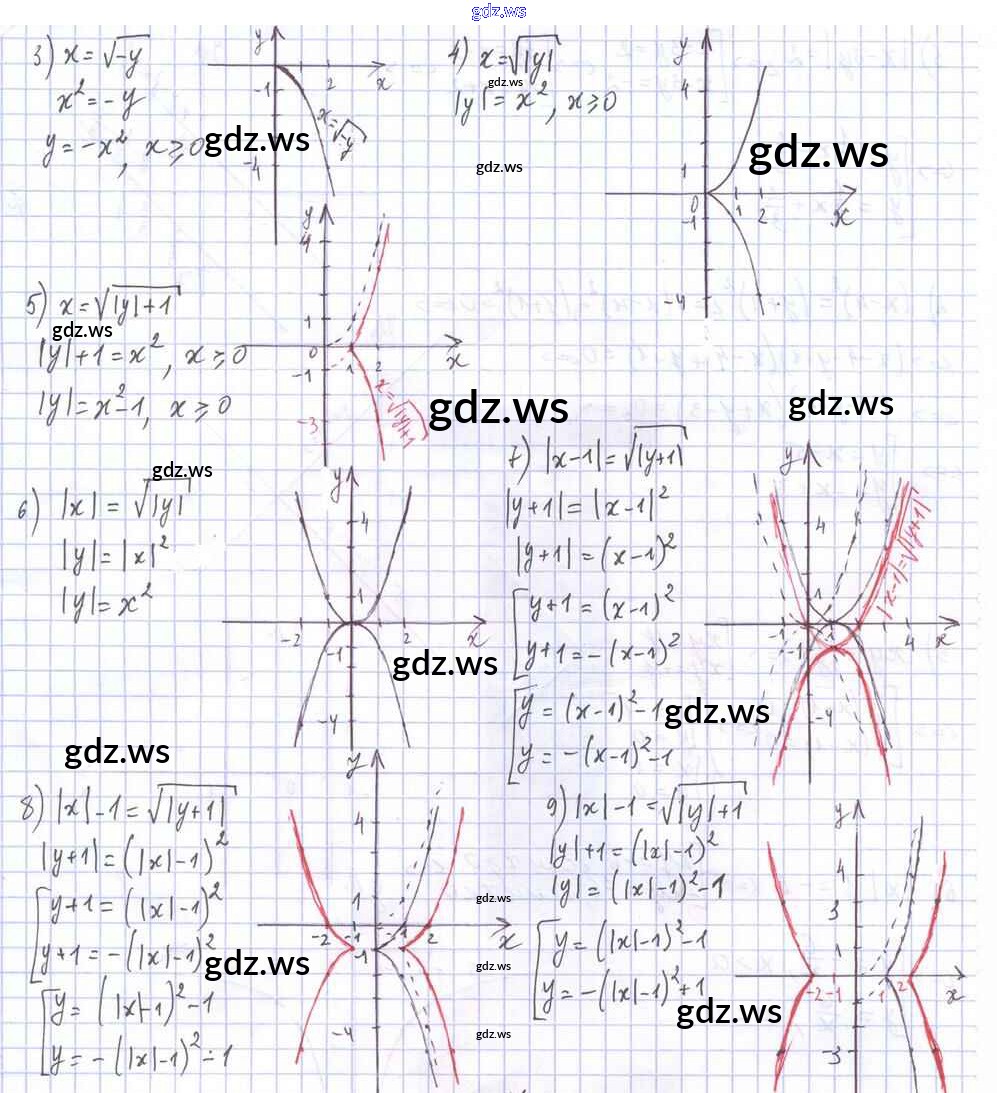 gdz.ws
3) x = √-y
x² = -y
y = -x², x ≥ 0
gdz.ws
y
-1
2
x
-4
x=√-y
4) x = √|y|
gdz.ws
|y| = x², x ≥ 0
gdz.ws
y
4
gdz.ws
1
0
-1
1 2
x
-4
5) x = √|y|+1
gdz.ws
|y|+1 = x², x ≥ 0
|y| = x²-1, x ≥ 0
y
4
1
0
-1
1 2
x
-3
x=√|y|+1
gdz.ws
gdz.ws
6) |x| = √|y|
gdz.ws
|y| = |x|²
|y| = x²
y
4
1
-2
2
x
-1
-4
gdz.ws
7) |x-1| = √|y+1|
|y+1| = |x-1|²
|y+1| = (x-1)²
y+1 = (x-1)²
y+1 = -(x-1)²
y = (x-1)²-1
y = -(x-1)²-1
gdz.ws
y
4
1
-1
1
4
x
-1
-4
|x-1|=√|y+1|
gdz.ws
8) |x|-1 = √|y+1|
|y+1| = (|x|-1)²
y+1 = (|x|-1)²
y+1 = -(|x|-1)²
gdz.ws
y = (|x|-1)²-1
y = -(|x|-1)²-1
y
4
1
-2 -1
1 2
x
-1
-4
gdz.ws
gdz.ws
gdz.ws
9) |x|-1 = √|y|+1
|y|+1 = (|x|-1)²
|y| = (|x|-1)²-1
y = (|x|-1)²-1
y = -(|x|-1)²+1
gdz.ws
y
4
3
1
-2 -1
1 2
x
-3